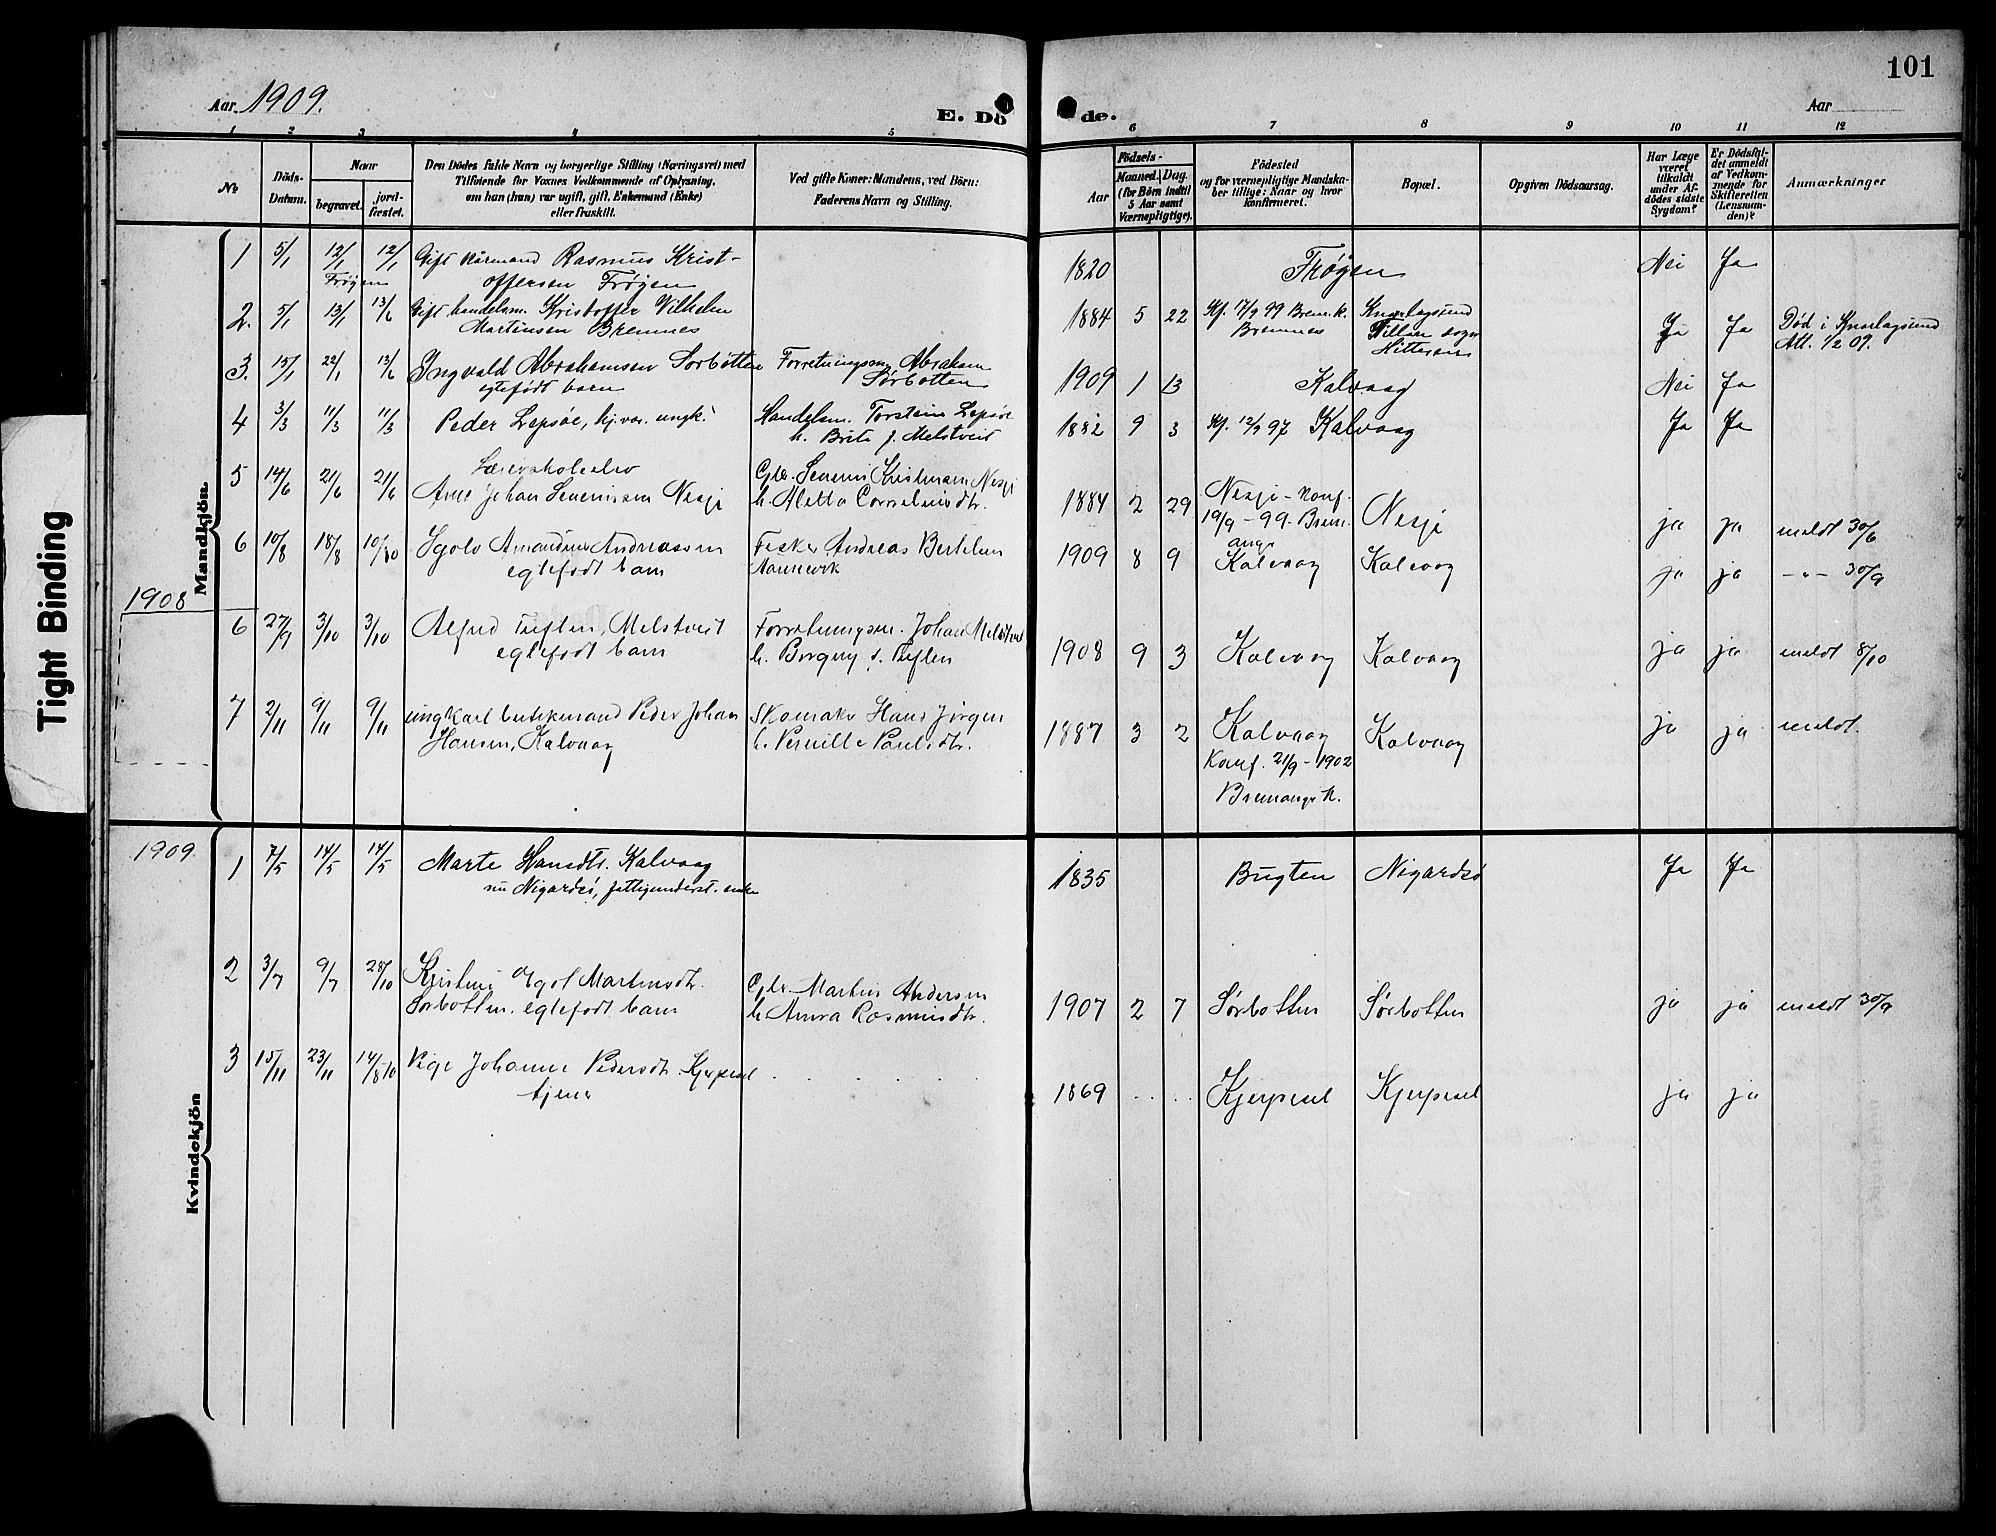 101
Aar 1909.
E. Dö de.
Aar
1 2 3 4 5 6 7 8 9 10 11 12
No
Döds-
Datum.
Naar
begravet.
jord-
fæstet.
Den Dödes fulde Navn og borgerlige Stilling (Næringsvei) med
Tilföiende for Voxnes Vedkommende af Oplysning,
om han (hun) var ugift, gift, Enkemand (Enke)
eller fraskilt.
Ved gifte Koner: Mandens, ved Börn:
Faderens Navn og Stilling.
Födsels-
Aar
Maaned. Dag.
(for Börn indtil
5 Aar samt
Værnepligtige).
Födested
og for værnepligtige Mandska-
ber tillige: Naar og hvor
konfirmeret.
Bopæl.
Opgiven Dödsaarsag.
Har Læge
været
tilkaldt
under Af-
dödes sidste
Sygdom?
Er Dödsfal-
det anmeldt
af Vedkom-
mende for
Skifteretten
(Lensman-
den)?
Anmærkninger
Mandkjön.
1 5/1 12/1 12/1 Gift kårmand Rasmus Krist- 1820 Frøyen Nei Ja
Frøyen offersen Frøyen
2. 5/1 13/1 13/6 Gift handelsm. Kristoffer Vilhelm 1884 5 22 Kf. 17/9 99 Brem.k. Knarlagsund Ja Ja Død i Knarlagsund
Martinsen Bremnes Bremnes Fillan sogn Att. 1/2 09.
Hitteren
3. 15/1 22/1 13/6 Ingvald Abrahamsen Sørbotten Forretningsm. Abraham 1909 1 13 Kalvaag Nei Ja
egtefødt barn Sørbotten
4 3/3 11/3 11/3 Peder Lepsøe, hj.vær. ungk. Handelsm. Torstein Lepsøe 1882 9 3 Kf. 12/9 97 Kalvaag Ja Ja
h. Brita f. Melstveit
5 14/6 21/6 21/6 Lærerskoleelev Gbr. Severin Kristiansen Nesje 1884 2 29 Nesje - Konf. Nesje ja ja meldt 30/6
Arne Johan Severinsen Nesje h. Aletta Corneliusdtr. 19/9 - 99. Brem-
ange
6 10/8 18/8 10/10 Amandus Andreassen Fisker Andreas Bertelsen 1909 8 9 Kalvaag Kalvaag ja ja -"- 30/9
egtefødt barn
1908
6 27/9 3/10 3/10 Alfred Tuften, Melstveit Forretningsm. Johan Melstveit 1908 9 3 Kalvaag Kalvaag ja ja meldt 8/10
egtefødt barn h. Borgny f. Tuften
7 2/11 9/11 9/11 ungkarl Peder Johan Skomaker Hans Jørgen 1887 3 2 Kalvaag Kalvaag ja ja meldt.
Hansen, Kalvaag h. Pernille Paulsdtr. Konf. 21/9 - 1902
Bremanger k.
1909
Kvindekjön
1 7/5 14/5 14/5 Marte Hansdtr. Kalvaag 1835 Bugten Nigardsø Ja Ja
nu Nigardsø, fattigunderst. enke
2 3/7 9/7 28/10 Kristine Egot Martinsdtr. Gbr. Martin Andersen 1907 2 7 Sørbotten Sørbotten ja ja meldt 30/9
Sørbotten. egtefødt barn h. Anna Rasmusdtr.
3 15/11 23/11 14/8 10 Pige Johanne Pedersdtr. Kjerpesel 1869 Kjerpesel Kjerpesel ja ja
tjener
Tight Binding